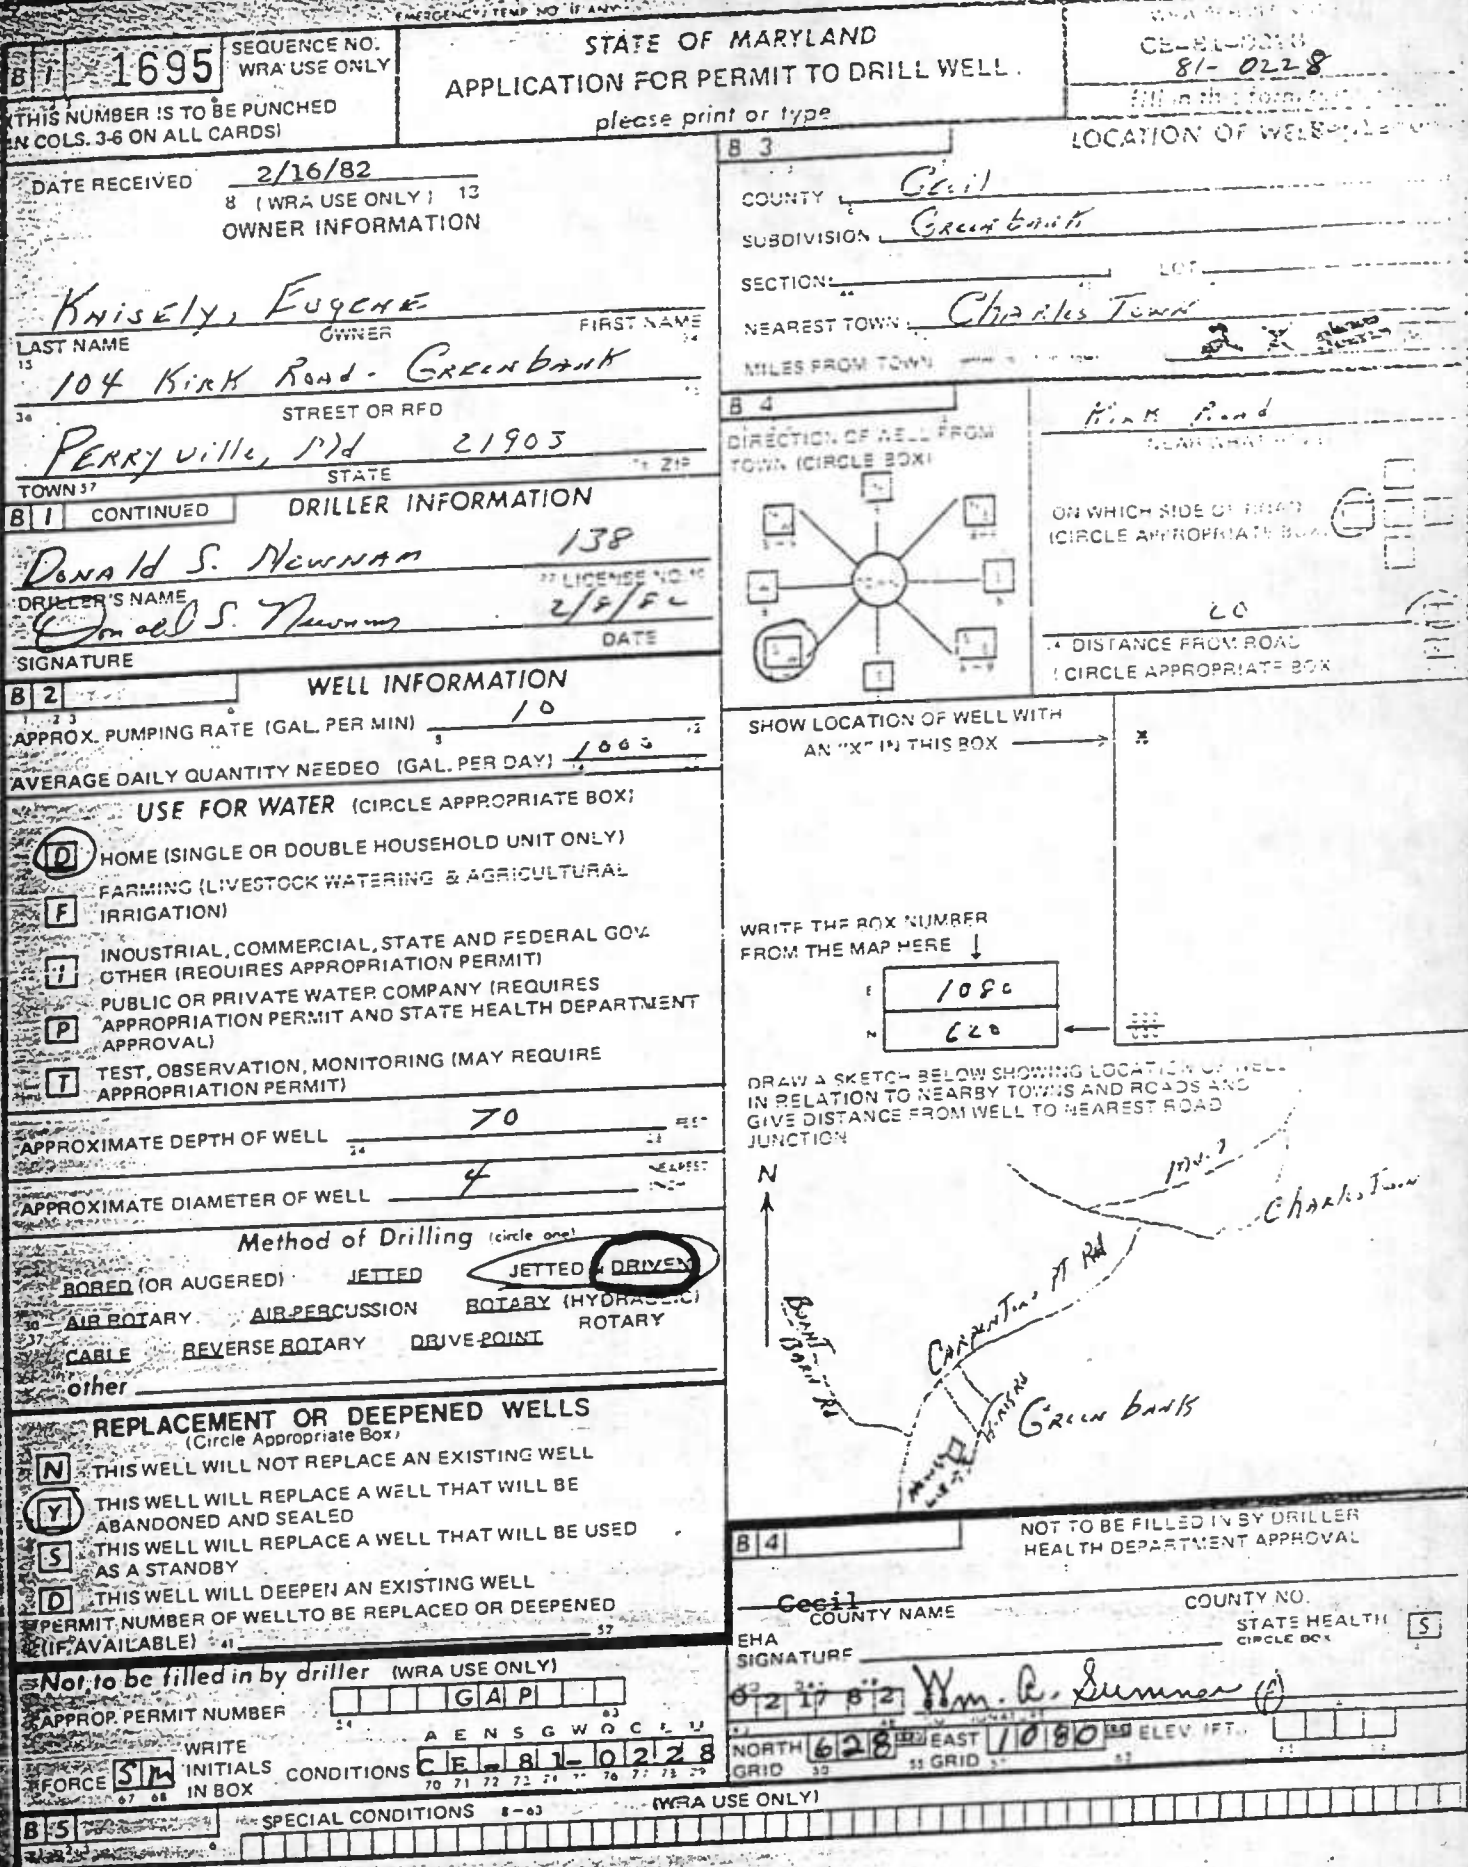 EMERGENCY/TEMP NO. IF ANY
B 1 1695 SEQUENCE NO.
WRA USE ONLY
(THIS NUMBER IS TO BE PUNCHED
IN COLS. 3-6 ON ALL CARDS)
STATE OF MARYLAND
APPLICATION FOR PERMIT TO DRILL WELL
please print or type
81-0228
fill in this form
DATE RECEIVED 2/16/82
8 (WRA USE ONLY) 13
OWNER INFORMATION
Knisely, Eugene
LAST NAME OWNER FIRST NAME
15 34
104 Kirk Road - Greenbank
36 STREET OR RFD
Perryville, Md 21903
TOWN 57 STATE ZIP
B 1 CONTINUED DRILLER INFORMATION
Donald S. Newnam 138
DRILLER'S NAME LICENSE NO.
Donald S. Newnam 2/8/82
SIGNATURE DATE
B 2 WELL INFORMATION
1 2 3 6
APPROX. PUMPING RATE (GAL. PER MIN) 10
8 12
AVERAGE DAILY QUANTITY NEEDED (GAL. PER DAY) 1000
USE FOR WATER (CIRCLE APPROPRIATE BOX)
D HOME (SINGLE OR DOUBLE HOUSEHOLD UNIT ONLY)
F FARMING (LIVESTOCK WATERING & AGRICULTURAL
IRRIGATION)
I INDUSTRIAL, COMMERCIAL, STATE AND FEDERAL GOV.
OTHER (REQUIRES APPROPRIATION PERMIT)
P PUBLIC OR PRIVATE WATER COMPANY (REQUIRES
APPROPRIATION PERMIT AND STATE HEALTH DEPARTMENT
APPROVAL)
T TEST, OBSERVATION, MONITORING (MAY REQUIRE
APPROPRIATION PERMIT)
APPROXIMATE DEPTH OF WELL 70 FEET
24 28
APPROXIMATE DIAMETER OF WELL 4 NEAREST
INCH
Method of Drilling (circle one)
BORED (OR AUGERED) JETTED JETTED & DRIVEN
30 AIR ROTARY AIR-PERCUSSION ROTARY (HYDRAULIC)
ROTARY
37 CABLE REVERSE ROTARY DRIVE-POINT
other
REPLACEMENT OR DEEPENED WELLS
(Circle Appropriate Box)
N THIS WELL WILL NOT REPLACE AN EXISTING WELL
Y THIS WELL WILL REPLACE A WELL THAT WILL BE
ABANDONED AND SEALED
S THIS WELL WILL REPLACE A WELL THAT WILL BE USED
AS A STANDBY
D THIS WELL WILL DEEPEN AN EXISTING WELL
PERMIT NUMBER OF WELL TO BE REPLACED OR DEEPENED
(IF AVAILABLE) 41 52
Not to be filled in by driller (WRA USE ONLY)
APPROP. PERMIT NUMBER GAP
54 63
A E N S G W Q C L U
FORCE SM WRITE
INITIALS
IN BOX CONDITIONS CE-81-0228
67 68 70 71 72 73 74 75 76 77 78 79
B 3 LOCATION OF WELL
COUNTY Cecil
SUBDIVISION Greenbank
SECTION LOT
NEAREST TOWN Charles Town
MILES FROM TOWN
B 4
DIRECTION OF WELL FROM
TOWN (CIRCLE BOX)
Kirk Road
NEAR WHAT ROAD
ON WHICH SIDE OF ROAD
(CIRCLE APPROPRIATE BOX)
20
DISTANCE FROM ROAD
(CIRCLE APPROPRIATE BOX
SHOW LOCATION OF WELL WITH
AN "X" IN THIS BOX
X
WRITE THE BOX NUMBER
FROM THE MAP HERE
E 1080
N 620
000
000
DRAW A SKETCH BELOW SHOWING LOCATION OF WELL
IN RELATION TO NEARBY TOWNS AND ROADS AND
GIVE DISTANCE FROM WELL TO NEAREST ROAD
JUNCTION
N
Md. 7
Charles Town
Burnt
Barn Rd
Greenbank
B 4 NOT TO BE FILLED IN BY DRILLER
HEALTH DEPARTMENT APPROVAL
Cecil
COUNTY NAME COUNTY NO.
EHA
SIGNATURE STATE HEALTH
CIRCLE BOX S
021782 Wm. A. Sumner
NORTH
GRID 628 000 EAST
GRID 1080 000 ELEV. (FT.)
B 5 SPECIAL CONDITIONS 8-63 (WRA USE ONLY)